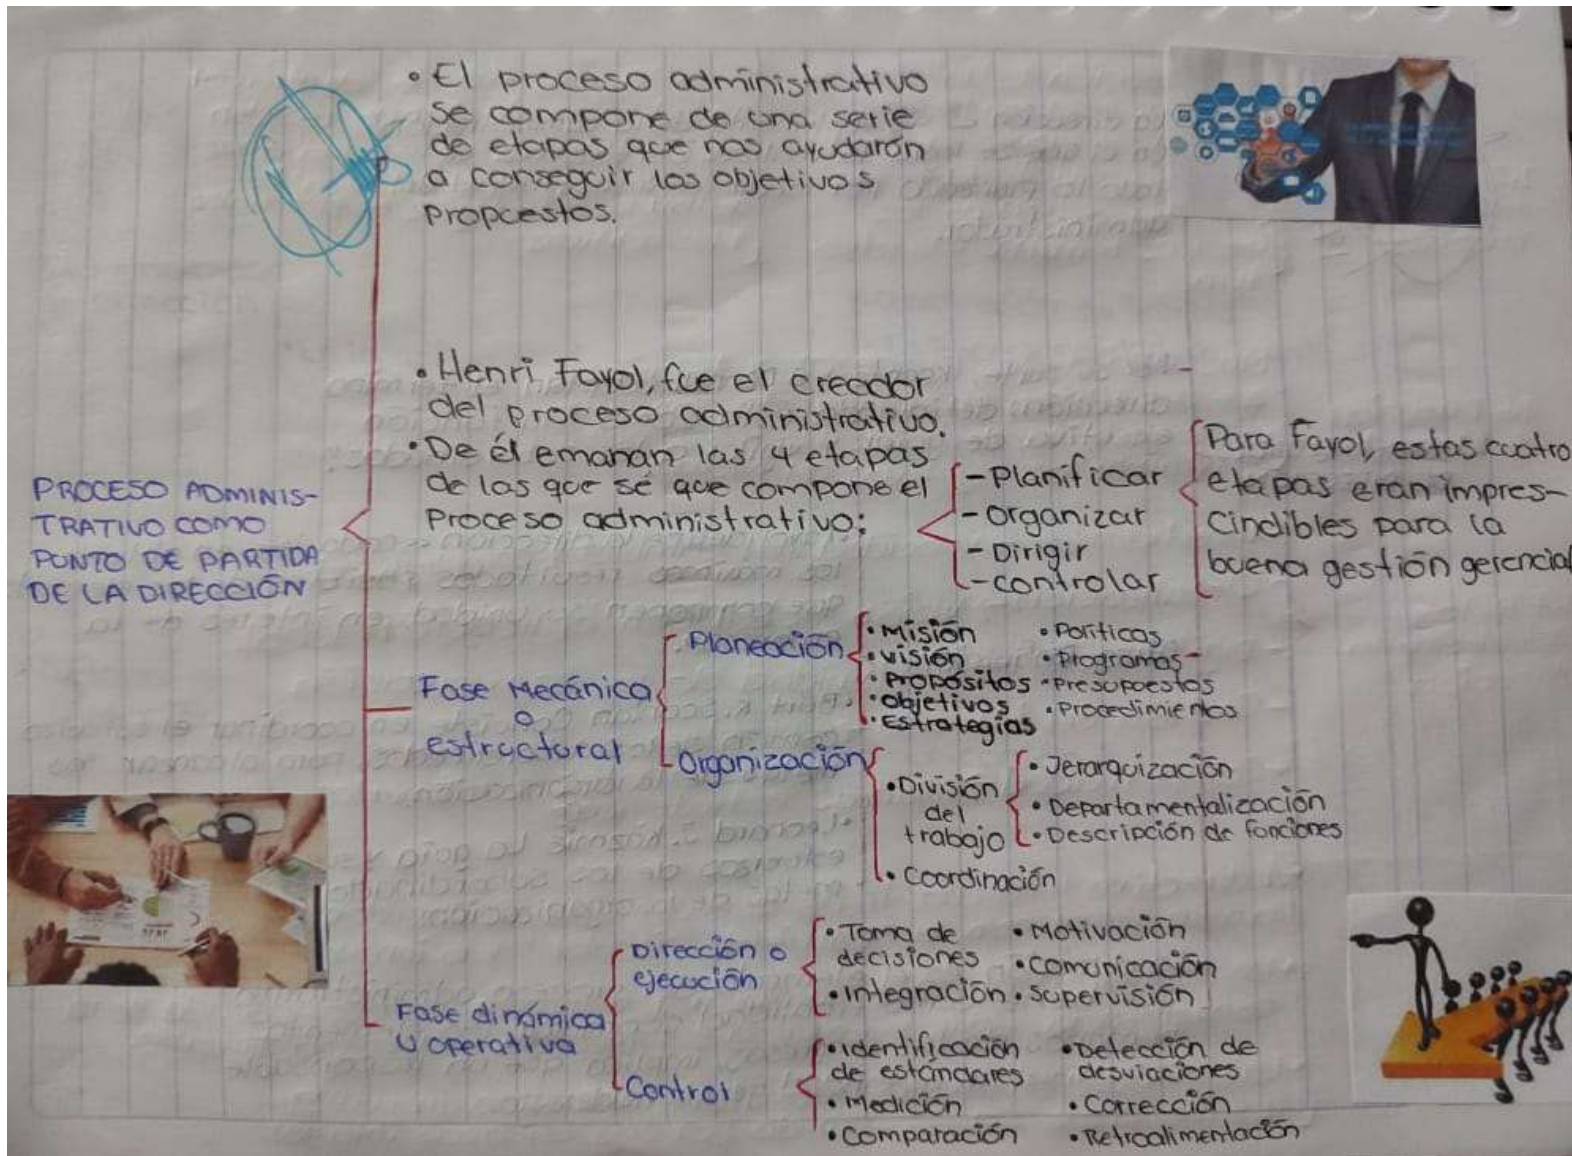 • El proceso administrativo
se compone de una serie
de etapas que nos ayudarán
a conseguir los objetivos
propuestos.
• Henri Fayol, fue el creador
del proceso administrativo.
• De él emanan las 4 etapas
de las que sé que compone el
Proceso administrativo:
- Planificar
- Organizar
- Dirigir
- controlar
Para Fayol, estas cuatro
etapas eran impres-
cindibles para la
buena gestión gerencial
PROCESO ADMINIS-
TRATIVO COMO
PUNTO DE PARTIDA
DE LA DIRECCIÓN
Fase Mecánica
o
estructural
Planeación
• Misión
• visión
• Propósitos
• Objetivos
• Estrategías
• Políticas
• Programas
• Presupuestos
• Procedimientos
Organización
• División
del
trabajo
• Jerarquización
• Departamentalización
• Descripción de funciones
• Coordinación
Fase dinámica
u operativa
Dirección o
ejecución
• Toma de
decisiones
• Integración
• Motivación
• Comunicación
• Supervisión
Control
• Identificación
de estándares
• Medición
• Comparación
• Detección de
desviaciones
• Corrección
• Retroalimentación